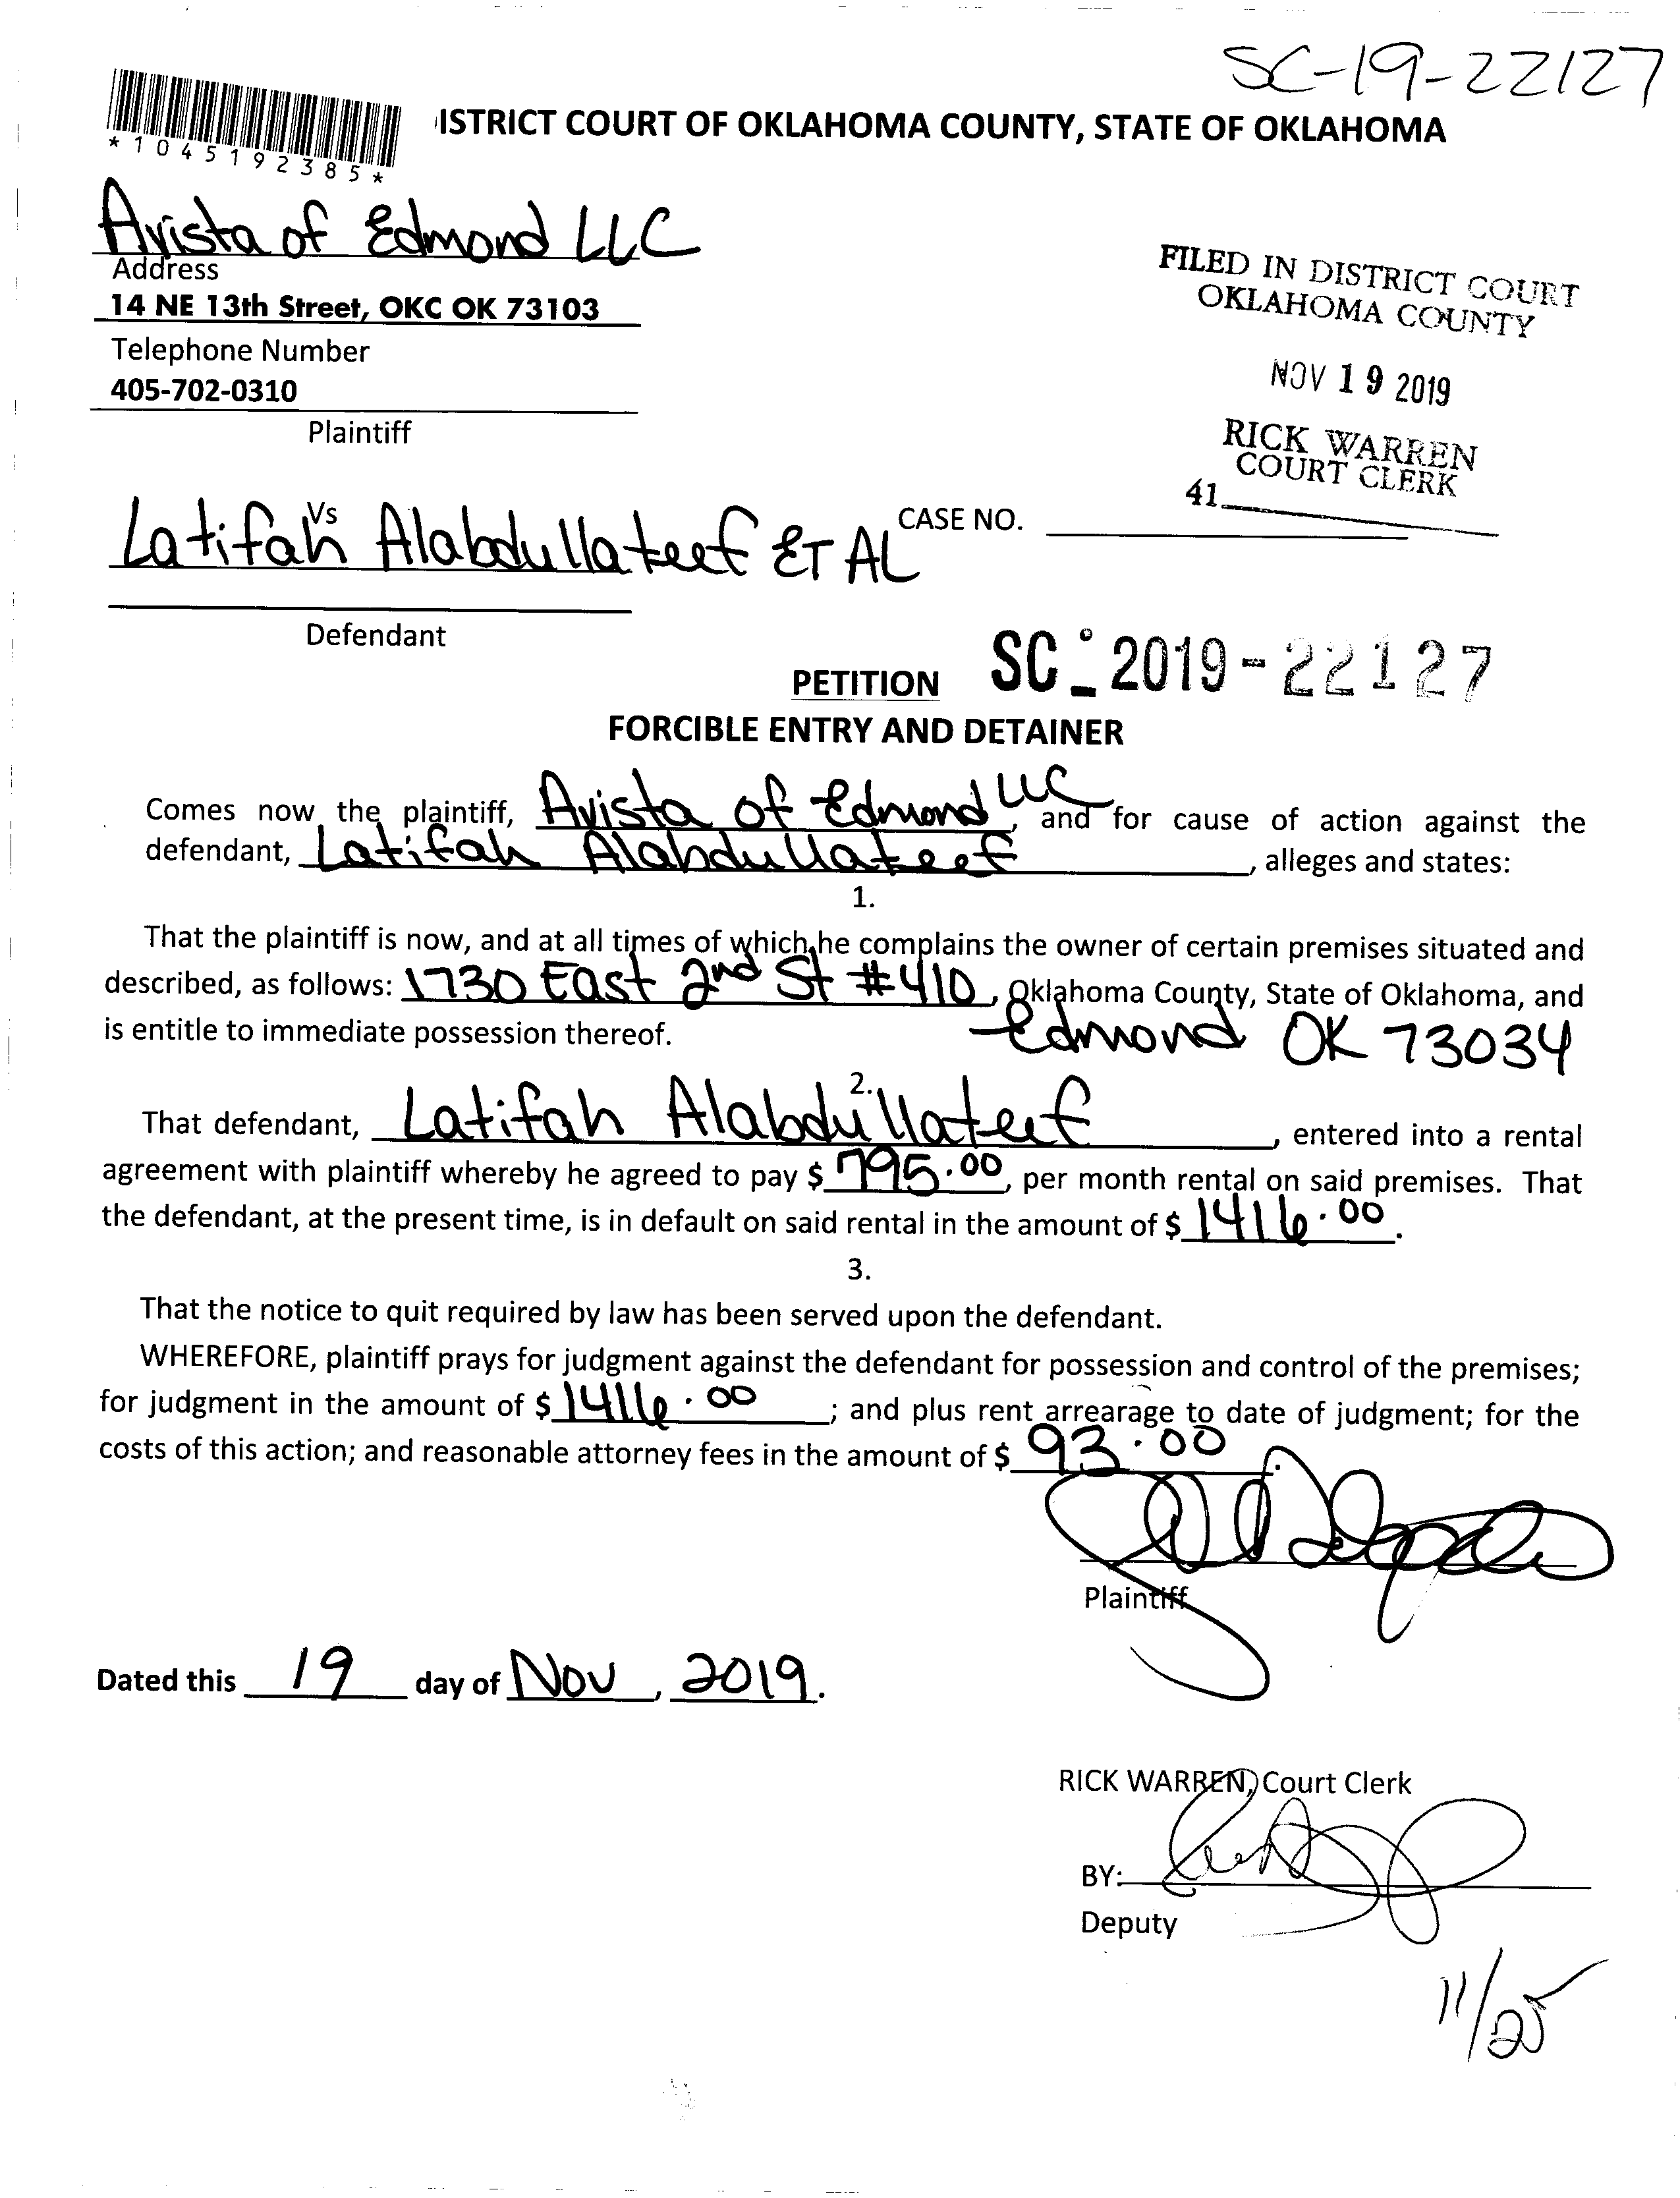 SC-19-22127
ISTRICT COURT OF OKLAHOMA COUNTY, STATE OF OKLAHOMA
*1045192385*
Avista of Edmond LLC
Address
14 NE 13th Street, OKC OK 73103
Telephone Number
405-702-0310
Plaintiff
FILED IN DISTRICT COURT
OKLAHOMA COUNTY
NOV 19 2019
RICK WARREN
COURT CLERK
41
Vs
Latifah Alabdullateef ET AL
CASE NO.
Defendant
SC - 2019-22127
PETITION
FORCIBLE ENTRY AND DETAINER
Comes now the plaintiff, Avista of Edmond LLC, and for cause of action against the
defendant, Latifah Alabdullateef, alleges and states:
1.
That the plaintiff is now, and at all times of which he complains the owner of certain premises situated and
described, as follows: 1730 East 2nd St #410, Oklahoma County, State of Oklahoma, and
is entitle to immediate possession thereof. Edmond OK 73034
2.
That defendant, Latifah Alabdullateef, entered into a rental
agreement with plaintiff whereby he agreed to pay $ 795.00, per month rental on said premises. That
the defendant, at the present time, is in default on said rental in the amount of $ 1416.00.
3.
That the notice to quit required by law has been served upon the defendant.
WHEREFORE, plaintiff prays for judgment against the defendant for possession and control of the premises;
for judgment in the amount of $ 1416.00; and plus rent arrearage to date of judgment; for the
costs of this action; and reasonable attorney fees in the amount of $ 93.00.
Plaintiff
Dated this 19 day of Nov, 2019.
RICK WARREN, Court Clerk
BY:
Deputy
11/25